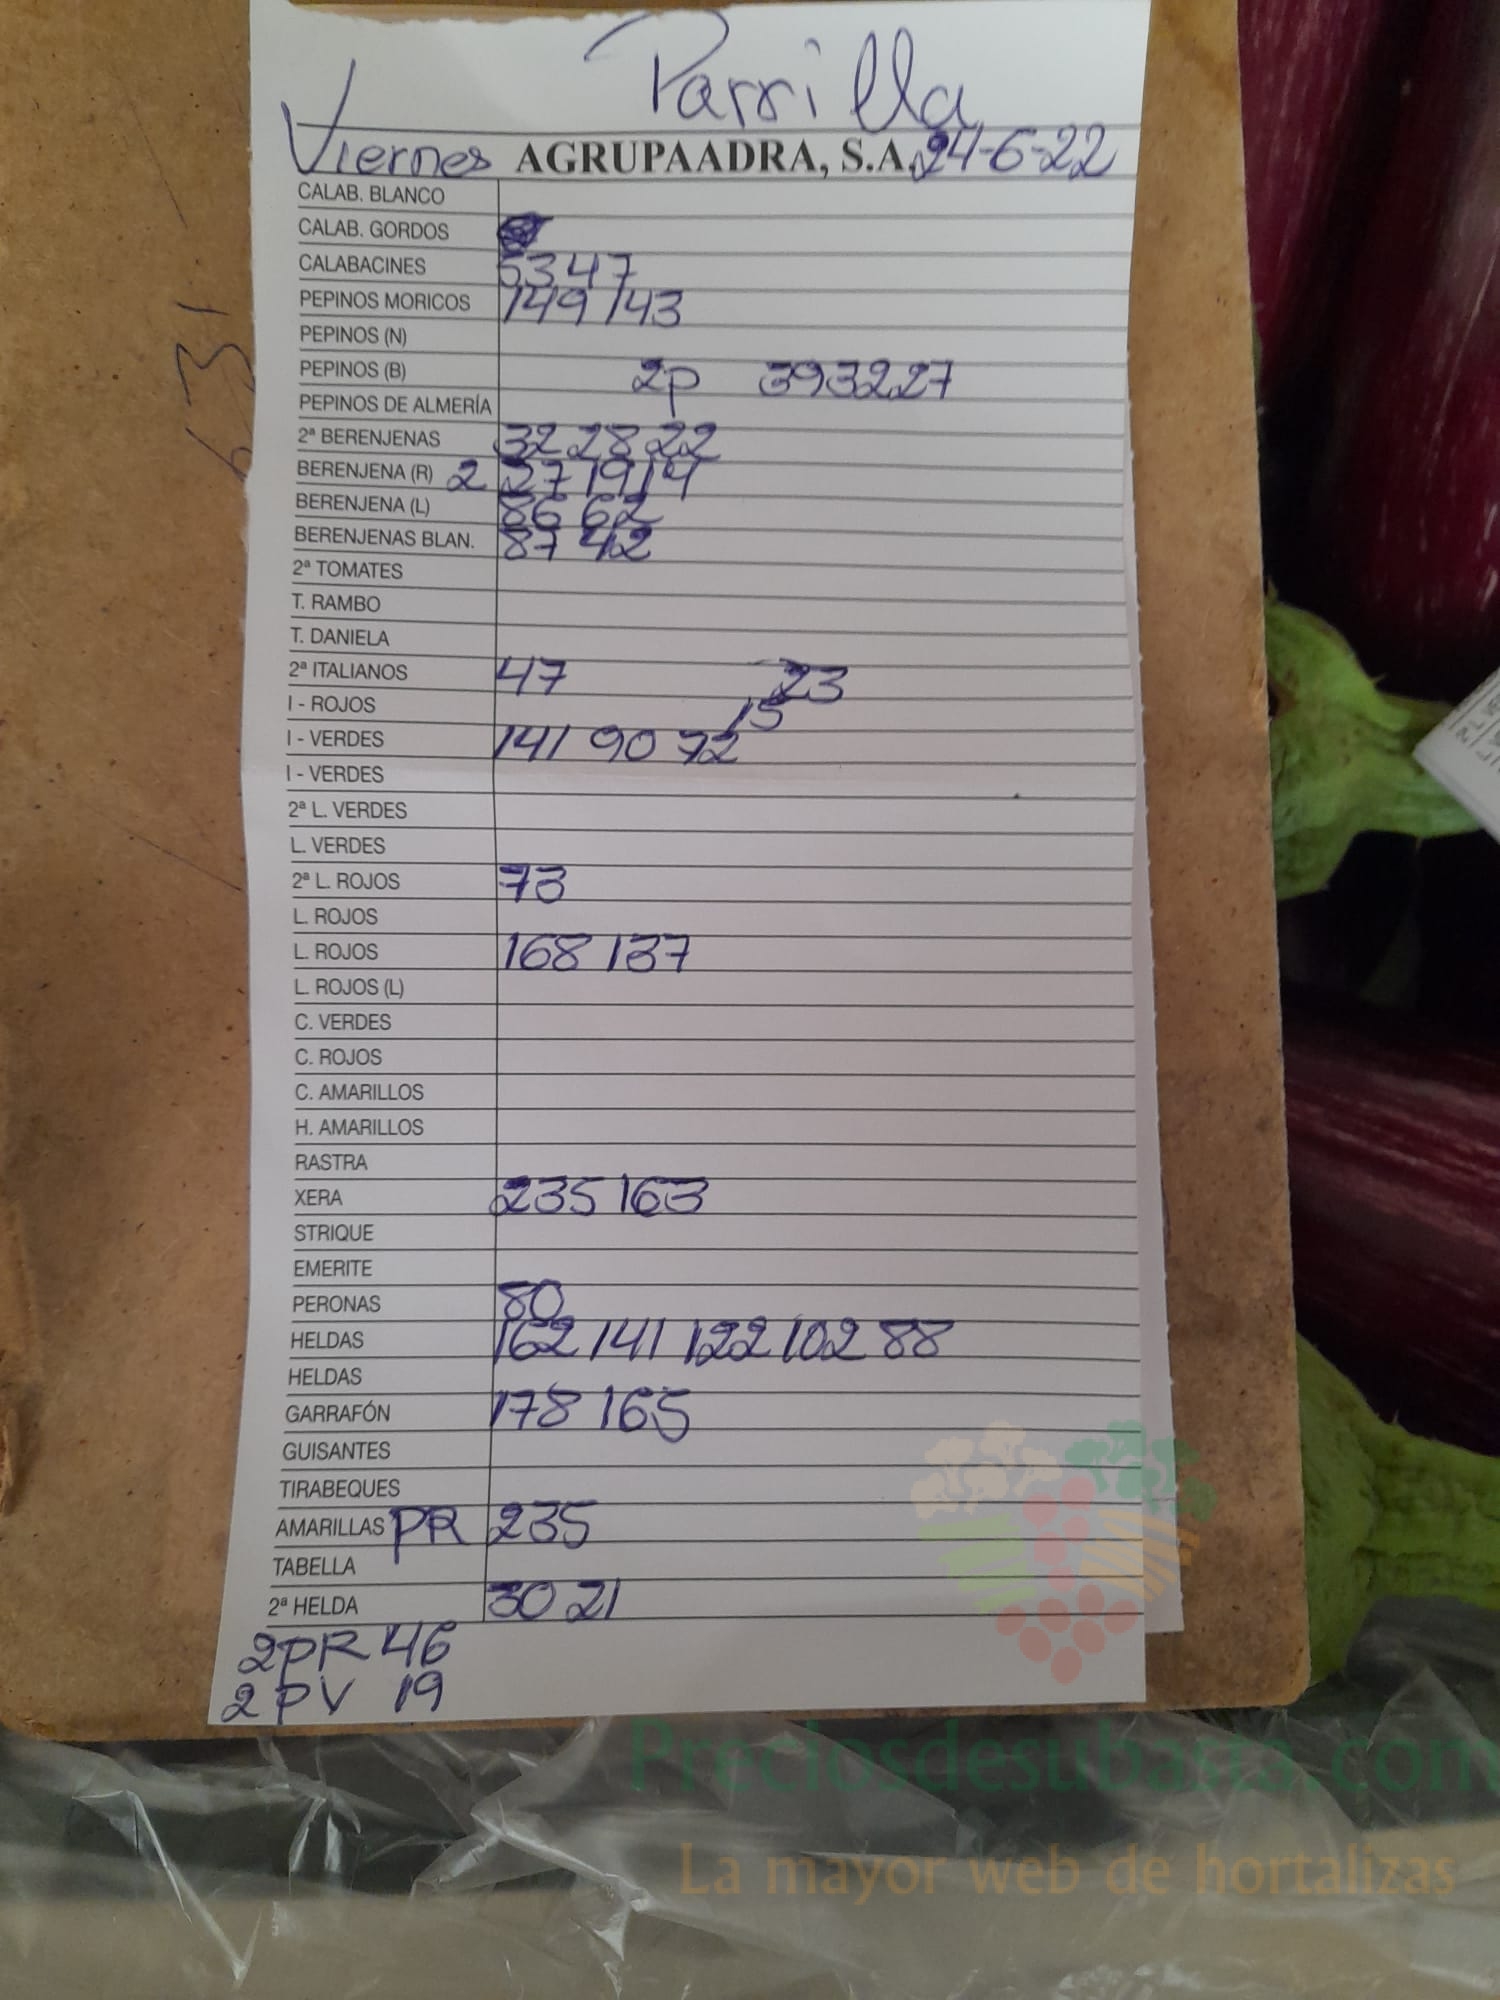 Parrilla
Viernes AGRUPAADRA, S.A. 24-6-22
CALAB. BLANCO
CALAB. GORDOS
CALABACINES 53 47
PEPINOS MORICOS 149 143
PEPINOS (N)
PEPINOS (B) 2p 39 32 27
PEPINOS DE ALMERÍA
2ª BERENJENAS 32 28 22
BERENJENA (R) 2 27 19 14
BERENJENA (L) 86 62
BERENJENAS BLAN. 87 42
2ª TOMATES
T. RAMBO
T. DANIELA
2ª ITALIANOS 47 23
I - ROJOS 15
I - VERDES 141 90 72
I - VERDES
2ª L. VERDES
L. VERDES
2ª L. ROJOS 73
L. ROJOS
L. ROJOS 168 137
L. ROJOS (L)
C. VERDES
C. ROJOS
C. AMARILLOS
H. AMARILLOS
RASTRA
XERA 235 163
STRIQUE
EMERITE
PERONAS 80
HELDAS 162 141 122 102 88
HELDAS
GARRAFÓN 178 165
GUISANTES
TIRABEQUES
AMARILLAS PR 235
TABELLA
2ª HELDA 30 21
2PR 46
2PV 19
Preciosdesubasta.com
La mayor web de hortalizas